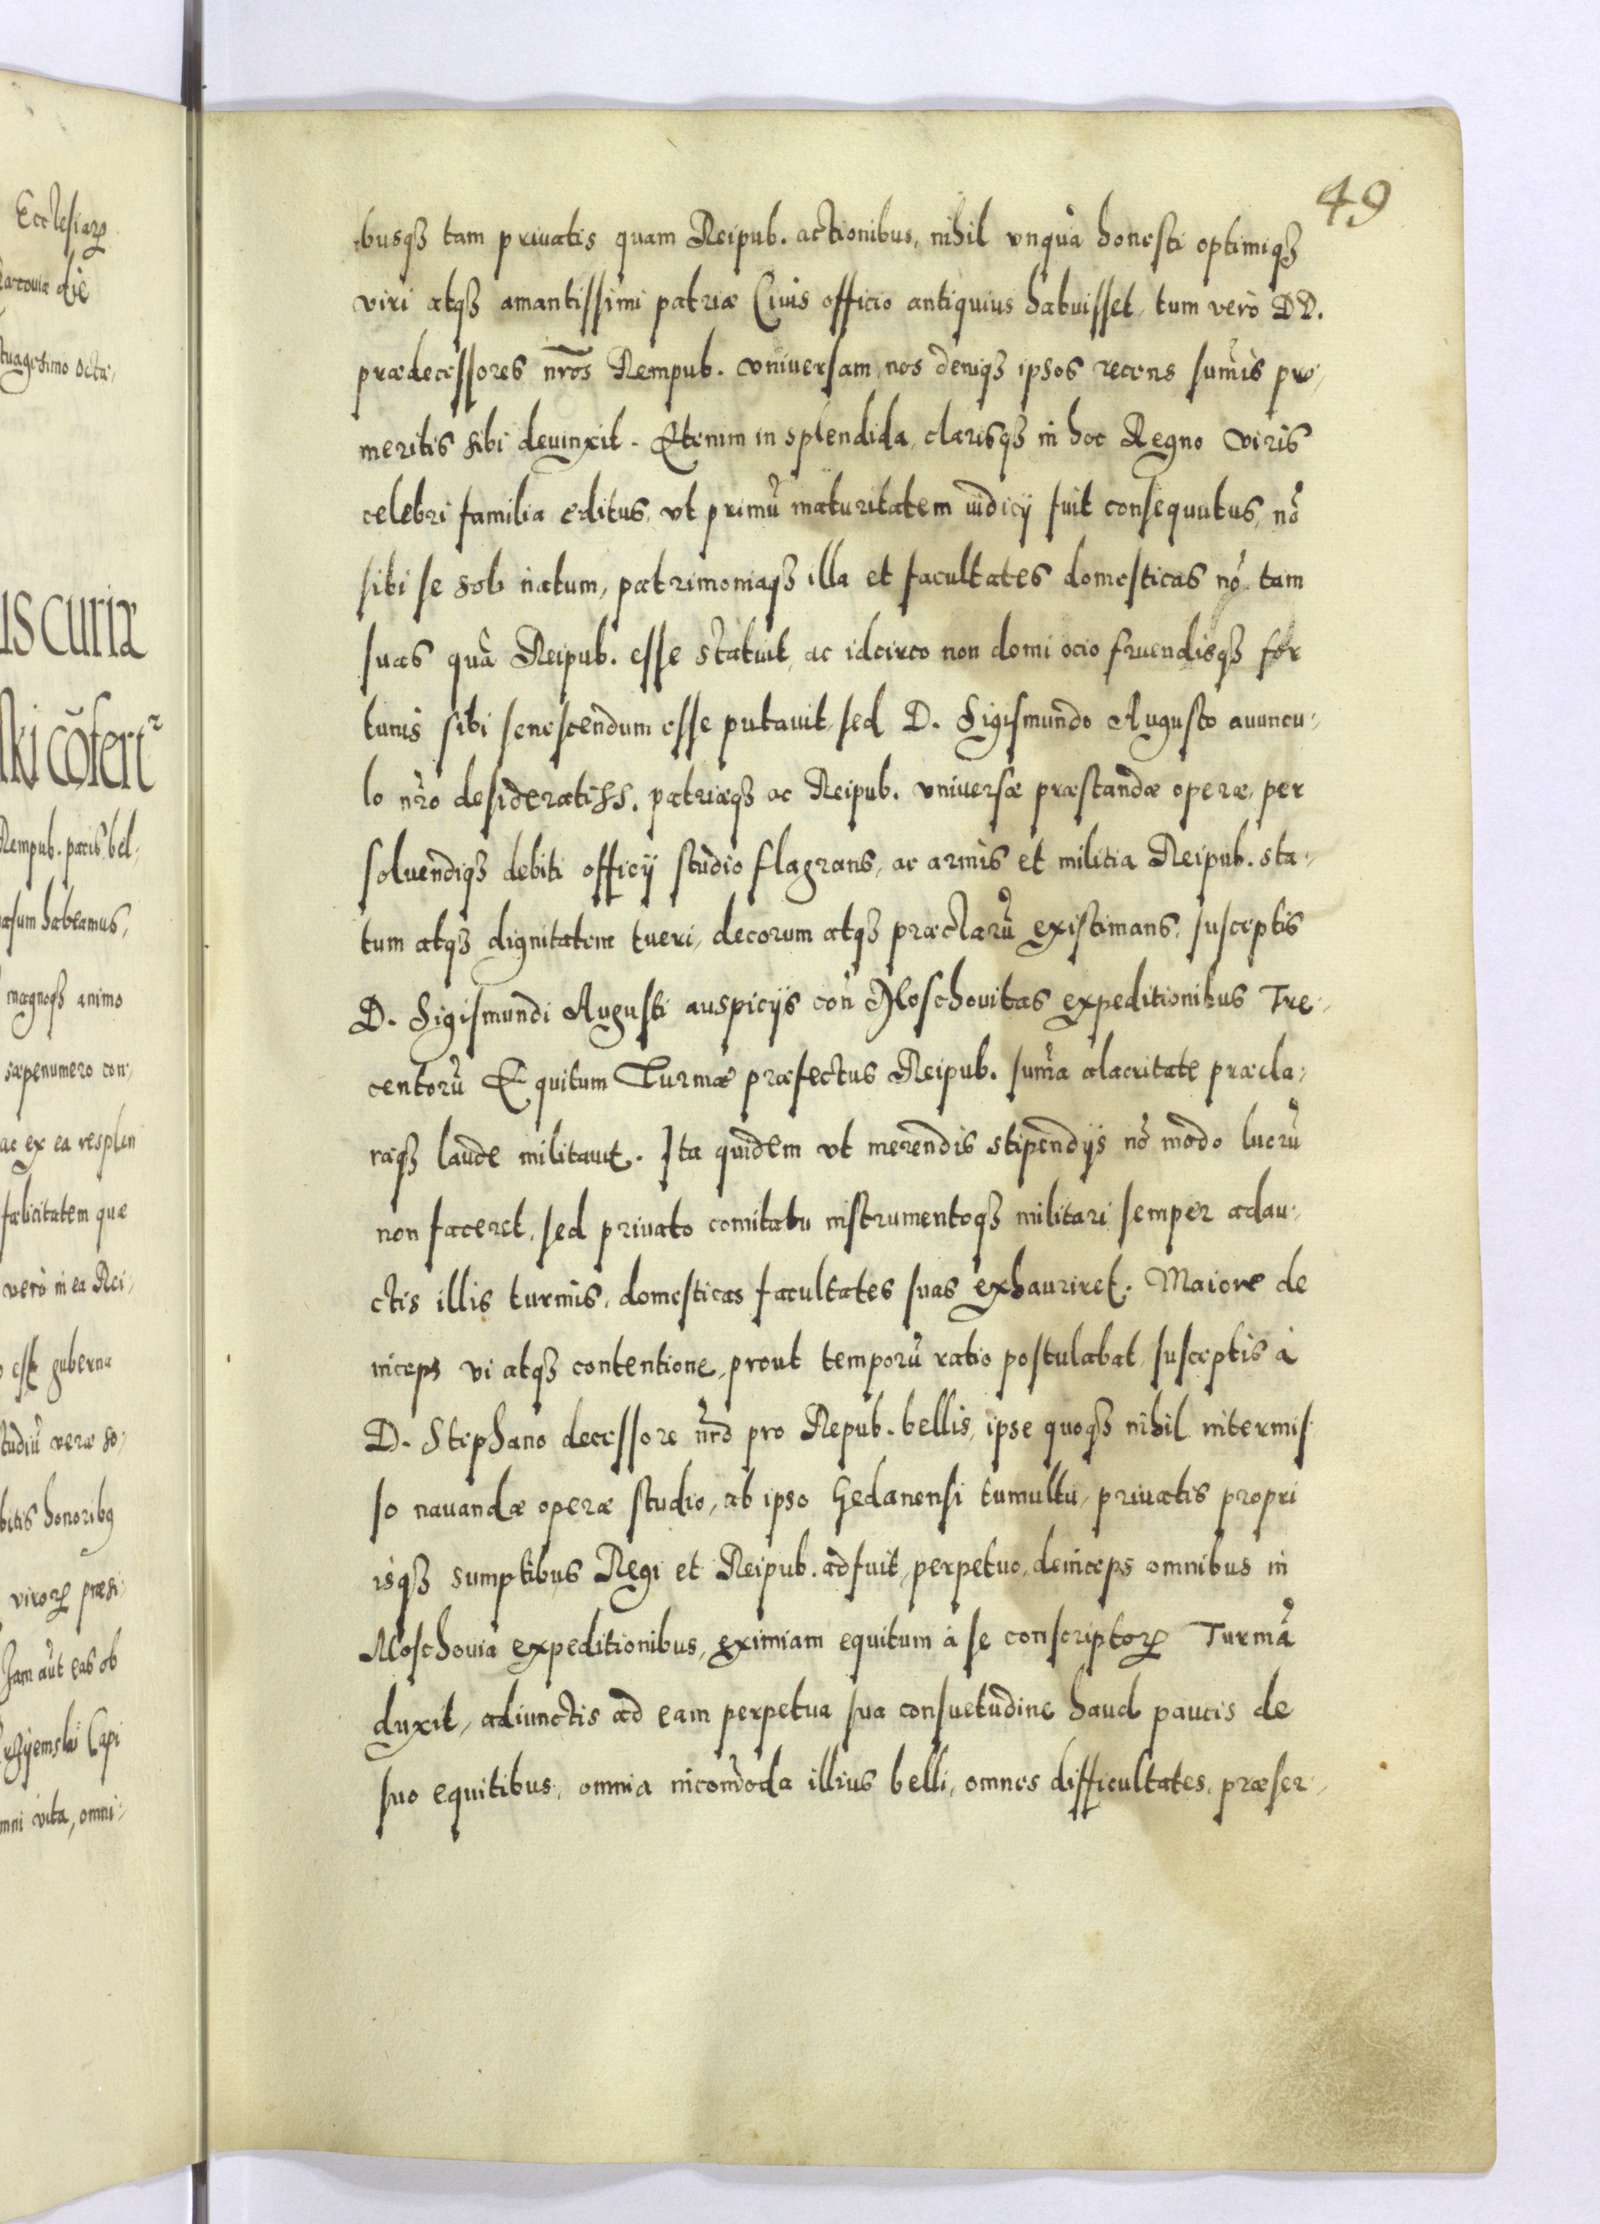 Ecclesiarꝝ
die
tuagesimo octa,
us curiæ
ski cōfert²
Rempub. pacis, bel,
habeamus,
magnoqꝫ animo
sæpenumero con,
ac ex ea resplen
fælicitatem quæ
verò in ea Rei,
est guberna
studiū veræ so,
bitis honoribꝰ
virorꝝ præsi,
Jam aūt eas ob
Capi
omni vita, omni,
49
busqꝫ tam priuatis quam Reipub. actionibus, nihil vnquā honesti optimiqꝫ
viri atqꝫ amantissimi patriæ Ciuis officio antiquius habuisset, tum verò DD.
prædecessores nr̄os Rempub. vniuersam, nos deniqꝫ ipsos recens sum̄is pro,
meritis sibi deuinxit. Etenim in splendida, clarisqꝫ in hoc Regno viris
celebri familia editus, vt primū maturitatem iudicij fuit consequutus, nō
sibi se soli natum, patrimoniaqꝫ illa et facultates domesticas nō tam
suas quā Reipub. esse statuit, ac idcirco non domi ocio fruendisqꝫ for
tunis sibi senescendum esse putauit, sed D. Sigismundo Augusto auuncu,
lo nr̄o desideratiss. patriæqꝫ ac Reipub. vniuersæ præstandæ operæ, per
soluendiqꝫ debiti officij studio flagrans, ac armis et militia Reipub. sta,
tum atqꝫ dignitatem tueri, decorum atqꝫ præclarū existimans, susceptis
D. Sigismundi Augusti auspicijs con̄ Moschouitas expeditionibus Tre,
centorū Equitum Turmæ præfectus Reipub. sum̄a alacritate præcla,
raqꝫ laude militauit. Ita quidem vt merendis stipendijs nō modo lucrū
non faceret, sed priuato comitatu instrumentoqꝫ militari semper adau,
ctis illis turmis, domesticas facultates suas exhauriret. Maiore de
inceps vi atqꝫ contentione, prout temporū ratio postulabat, susceptis à
D. Stephano decessore nr̄o pro Repub. bellis, ipse quoqꝫ nihil intermis
so nauandæ operæ studio, ab ipso Gedanensi tumultu, priuatis propri
isqꝫ sumptibus Regi et Reipub. adfuit, perpetuo, deinceps omnibus in
Moschouia expeditionibus, eximiam equitum à se conscriptorꝝ Turmā
duxit, adiunctis ad eam perpetua sua consuetudine haud paucis de
suo equitibus, omnia incom̄oda illius belli, omnes difficultates, præser,